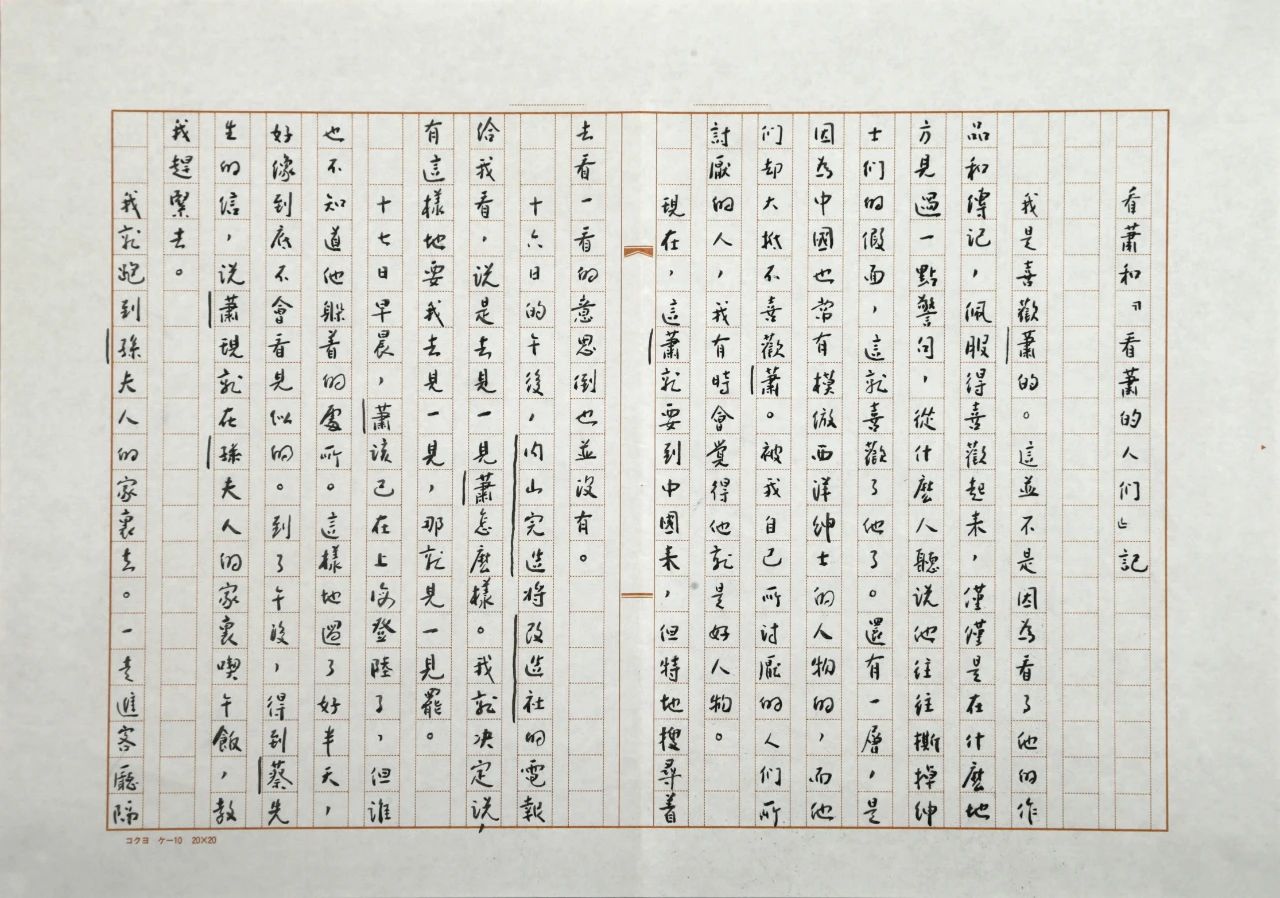 看蕭和『看蕭的人们』記
我是喜歡蕭的。這並不是因為看了他的作
品和傳記，佩服得喜歡起来，僅僅是在什麽地
方見過一點警句，從什麽人聽说他往往撕掉紳
士们的假面，這就喜歡了他了。還有一層，是
因為中國也常有模倣西洋紳士的人物的，而他
们却大抵不喜歡蕭。被我自己所討厭的人们所
討厭的人，我有時會覺得他就是好人物。
現在，這蕭就要到中國来，但特地搜尋着
去看一看的意思倒也並没有。
十六日的午後，内山完造将改造社的電報
给我看，说是去見一見蕭怎麽樣。我就决定说，
有這樣地要我去見一見，那就見一見罷。
十七日早晨，蕭该已在上海登陸了，但谁
也不知道他躲着的處所。這樣地過了好半天，
好像到底不會看見似的。到了午後，得到蔡先
生的信，说蕭現就在孫夫人的家裏喫午飯，教
我趕緊去。
我就跑到孫夫人的家裏去。一走進客廳隔
コクヨ ケー10 20×20